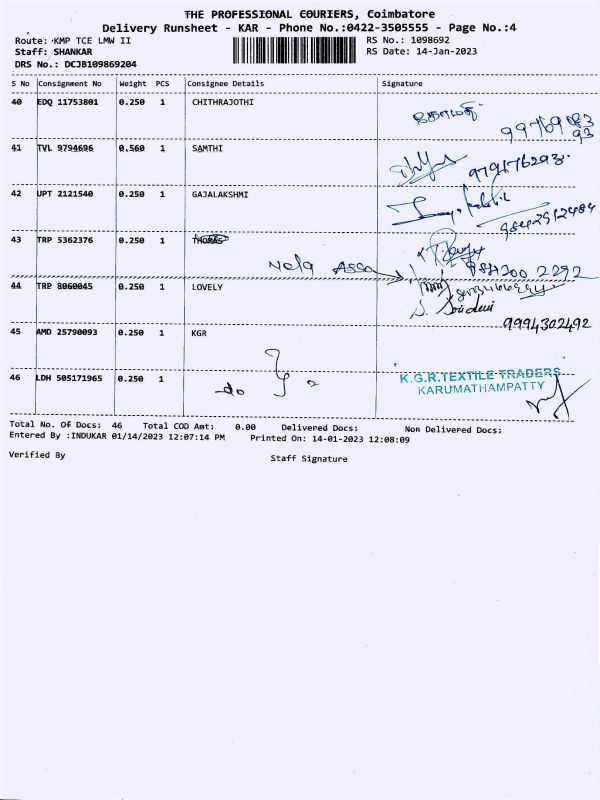 THE PROFESSIONAL COURIERS, Coimbatore
Delivery Runsheet - KAR - Phone No.:0422-3505555 - Page No.:4
Route: KMP TCE LMW II
RS No.: 1098692
Staff: SHANKAR
RS Date: 14-Jan-2023
DRS No.: DCJB109869204
S No Consignment No Weight PCS Consignee Details Signature
40 EDQ 11753801 0.250 1 CHITHRAJOTHI
41 TVL 9794696 0.560 1 SAMTHI 9791176293
42 UPT 2121540 0.250 1 GAJALAKSHMI 9842912484
43 TRP 5362376 0.250 1 THOMAS
984200 2292
44 TRP 8060045 0.250 1 LOVELY
S. Sridevi
9994302492
45 AMD 25790093 0.250 1 KGR
46 LDH 505171965 0.250 1 do
K.G.R.TEXTILE TRADERS
KARUMATHAMPATTY
Total No. Of Docs: 46 Total COD Amt: 0.00 Delivered Docs: Non Delivered Docs:
Entered By :INDUKAR 01/14/2023 12:07:14 PM Printed On: 14-01-2023 12:08:09
Verified By Staff Signature